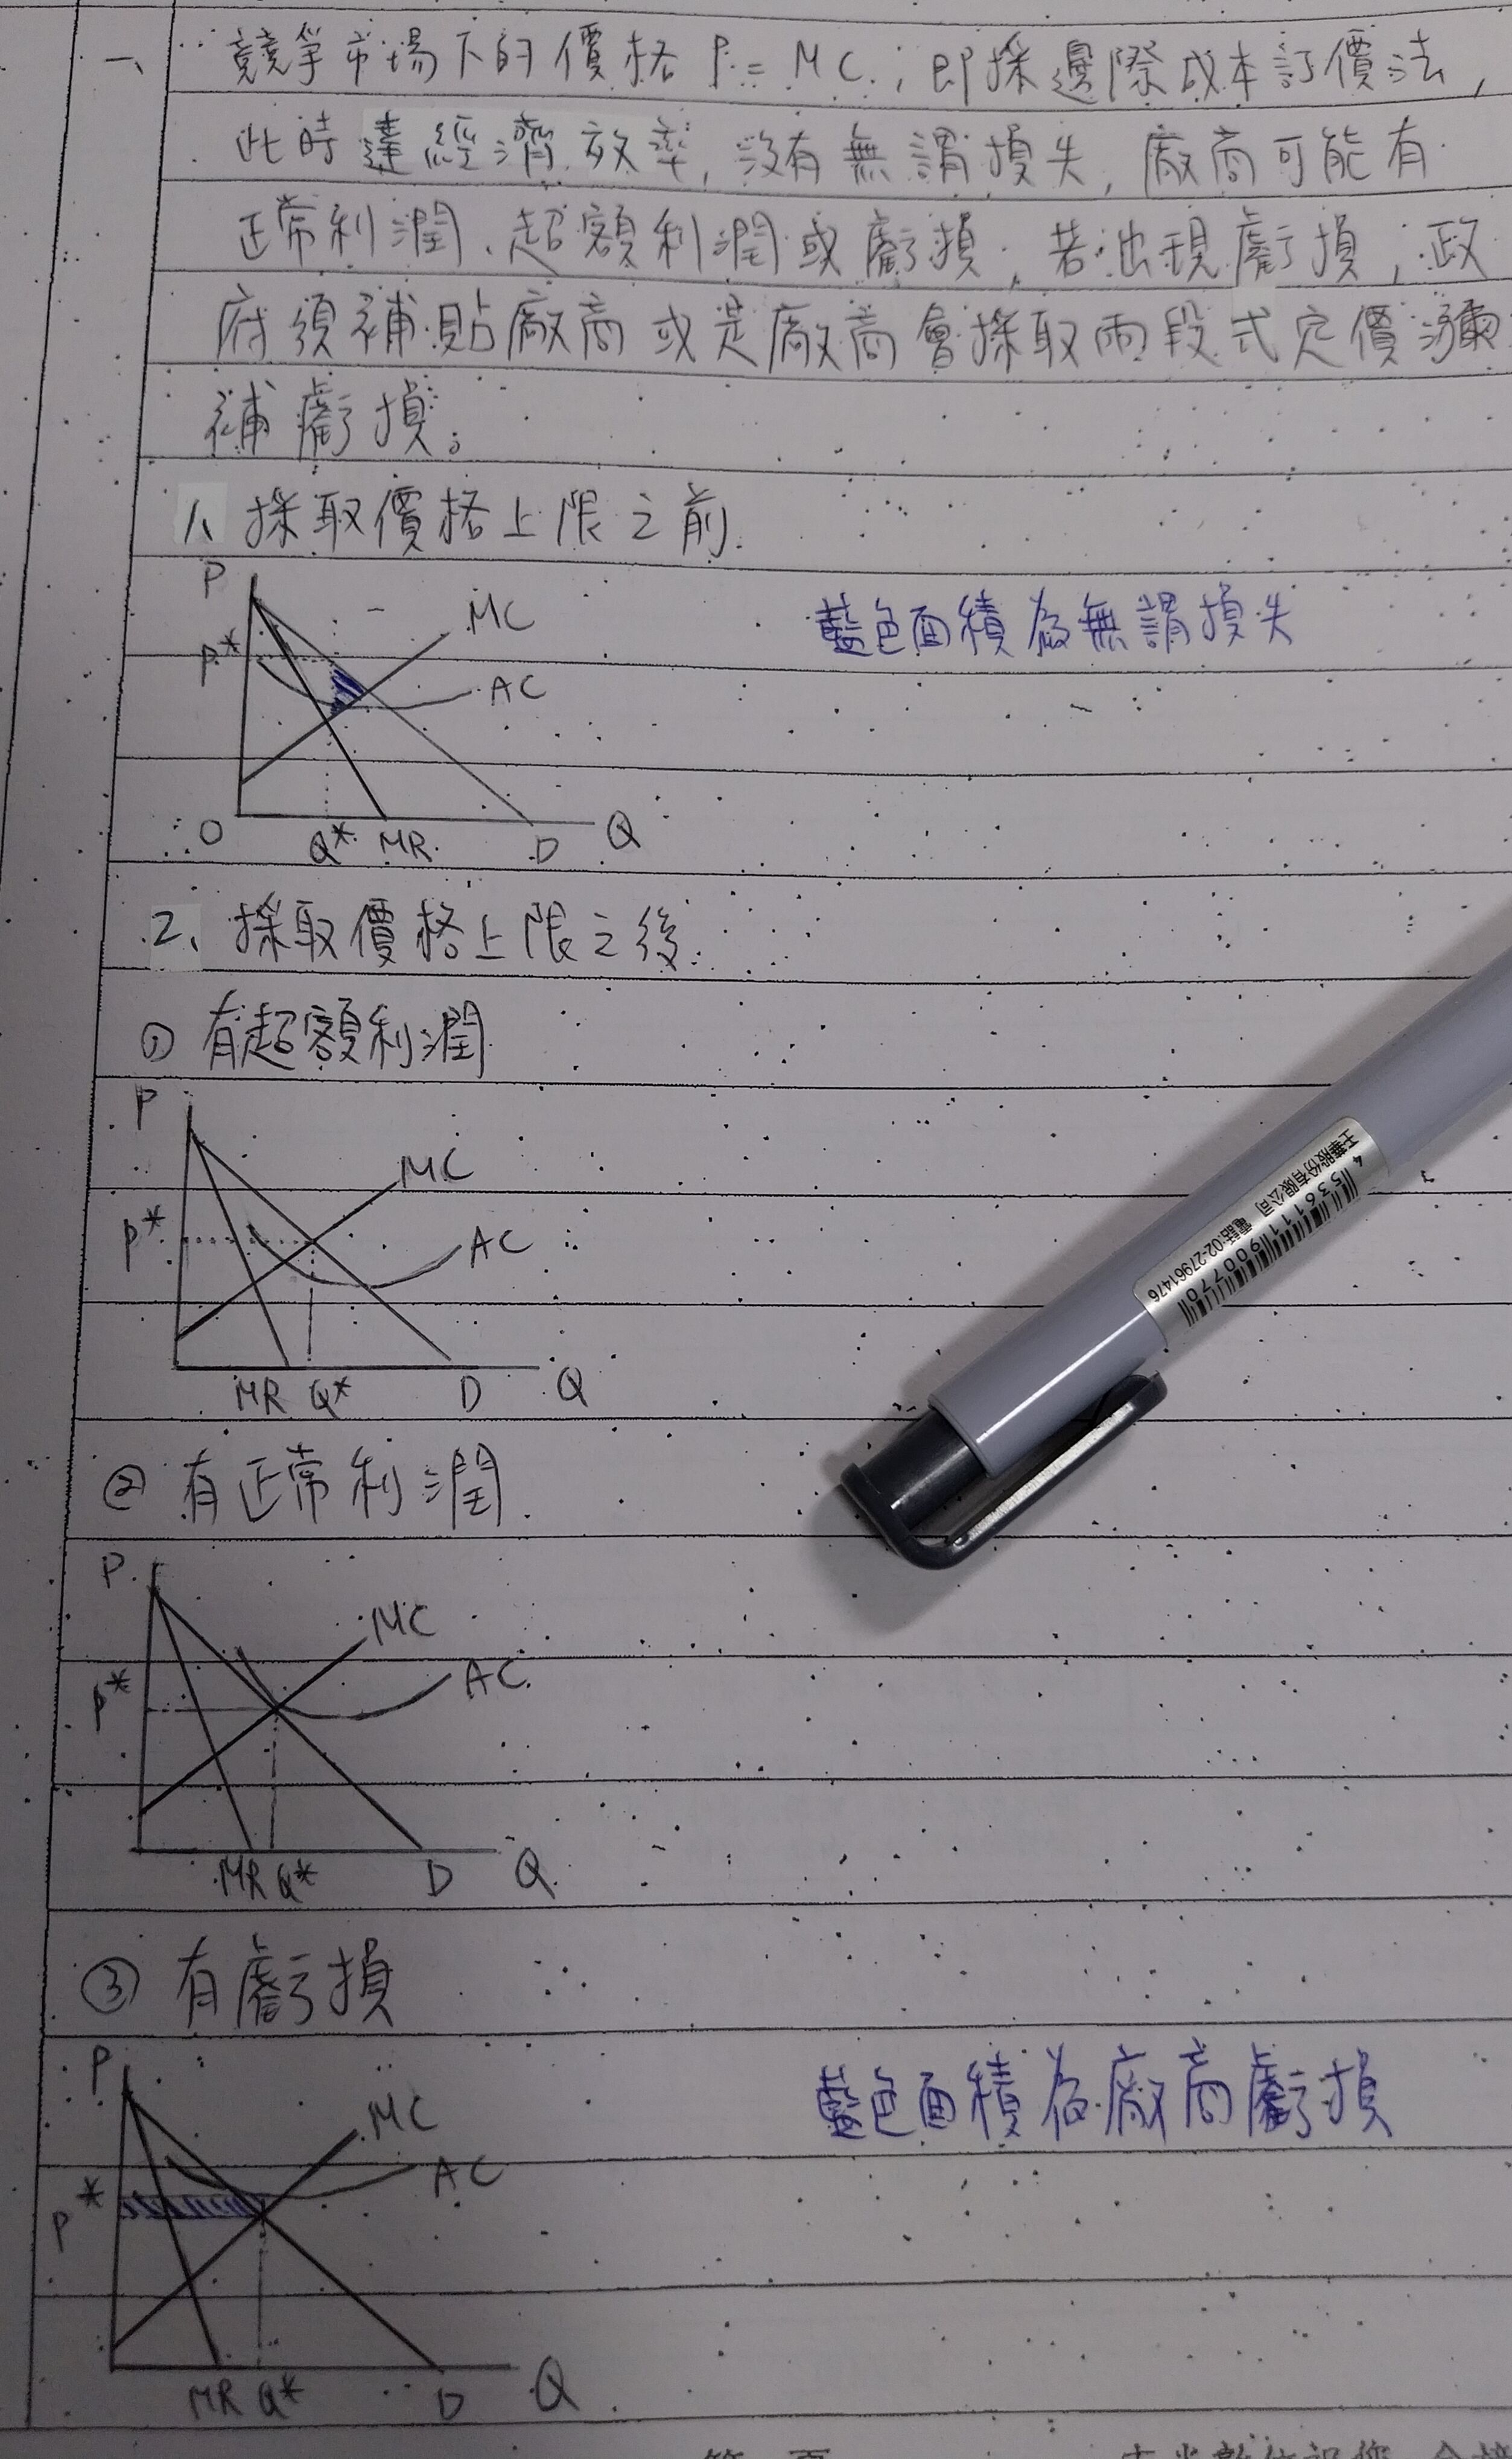 一、競爭市場下的價格P=MC，即採邊際成本訂價法，
此時達經濟效率，沒有無謂損失，廠商可能有
正常利潤、超額利潤或虧損，若出現虧損，政
府須補貼廠商或是廠商會採取兩段式定價瀰
補虧損。
1、採取價格上限之前
P
MC
藍色面積為無謂損失
P*
AC
O
Q* MR D Q
2、採取價格上限之後
① 有超額利潤
P
MC
P*
AC
MR Q* D Q
王華股份有限公司 電話:02-27961476
4 536111 900770
② 有正常利潤
P
MC
P*
AC
MR Q* D Q
③ 有虧損
P
MC
藍色面積為廠商虧損
P*
AC
MR Q* D Q